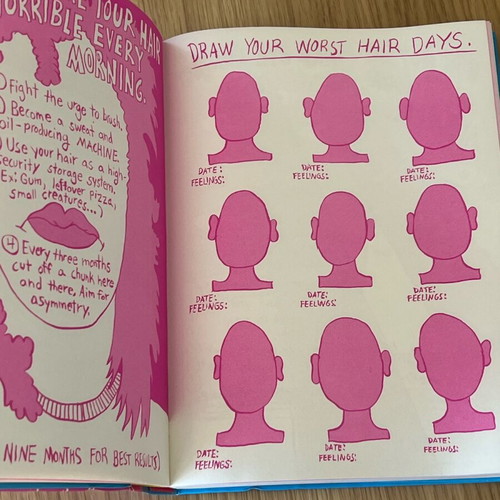 YOUR HAIR
HORRIBLE EVERY
MORNING.
Fight the urge to brush.
Become a sweat and
oil-producing MACHINE.
Use your hair as a high-
security storage system.
(Ex: Gum, leftover pizza,
small creatures...)
④ Every three months
cut off a chunk here
and there, Aim for
asymmetry.
NINE MONTHS FOR BEST RESULTS)
DRAW YOUR WORST HAIR DAYS.
DATE:
FEELINGS:
DATE:
FEELINGS:
DATE:
FEELINGS:
DATE:
FEELINGS:
DATE:
FEELINGS:
DATE:
FEELINGS:
DATE:
FEELINGS:
DATE:
FEELINGS:
DATE:
FEELINGS: